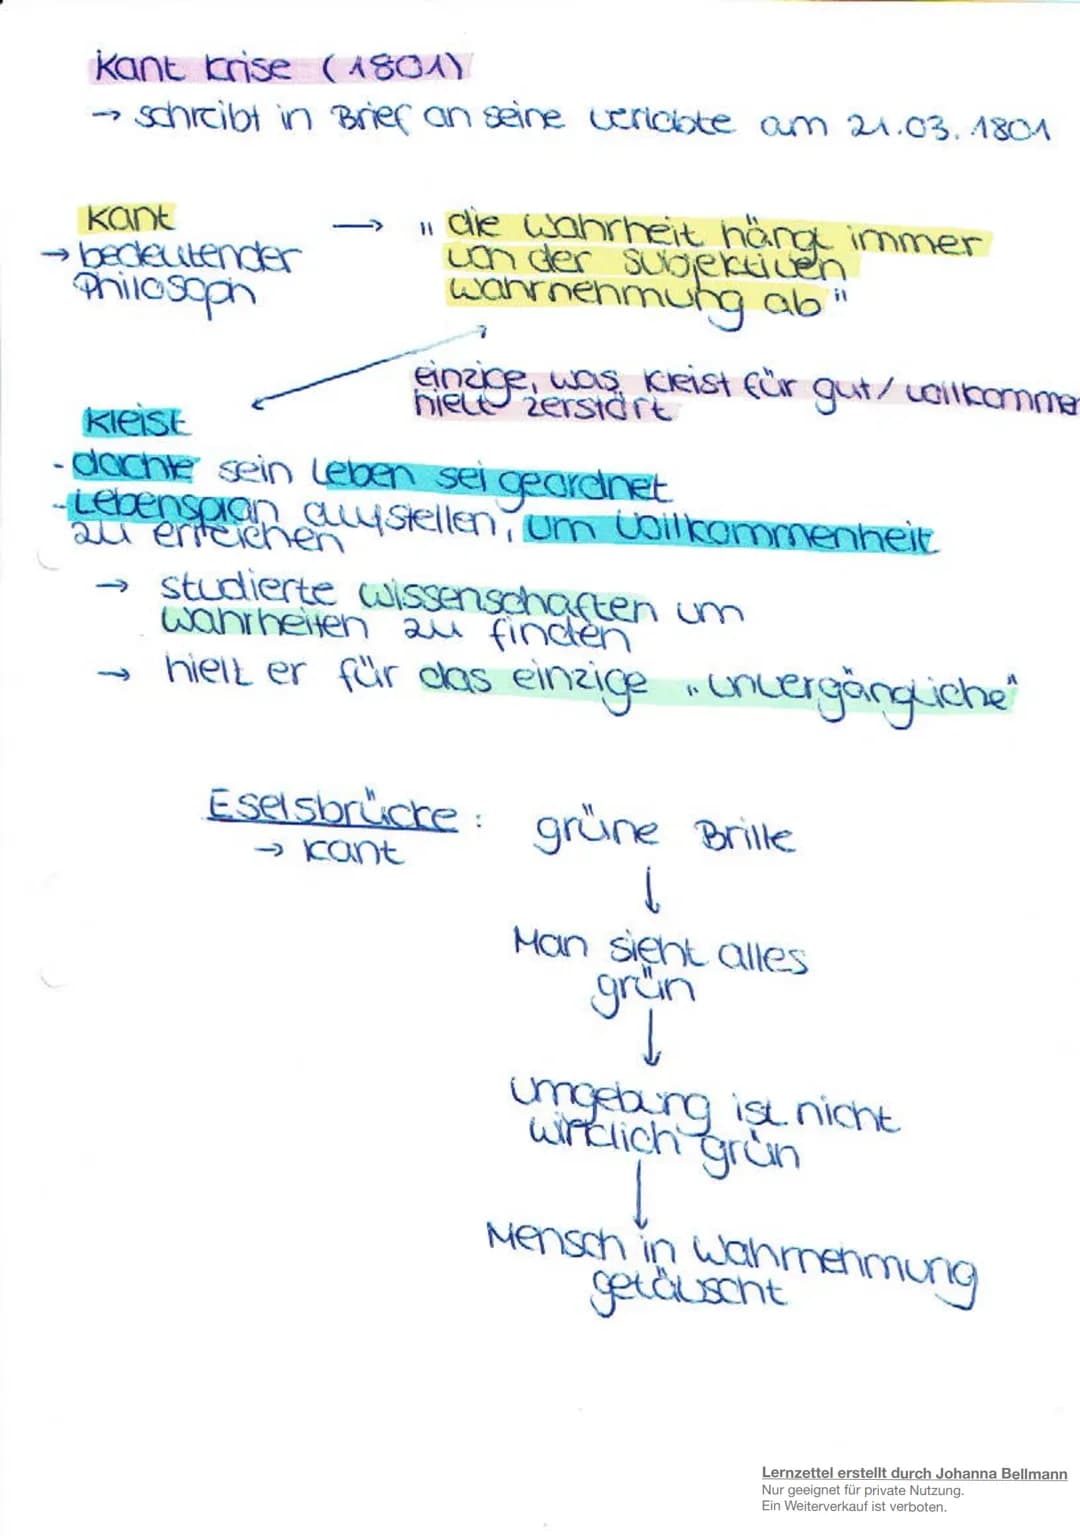 Kant Krise (1801)
→ schreibt in Brief an seine Verlobte am 21.03.1801
Kant
→ bedeutender
Philosoph
→ "die Wahrheit hängt immer
von der subjektiven
Wahrnehmung ab"
einzige, was Kleist für gut/vollkommen
hielt zerstört
Kleist
- dachte sein Leben sei geordnet
- Lebensplan aufstellen, um Vollkommenheit
zu erreichen
→ studierte Wissenschaften um
Wahrheiten zu finden
→ hielt er für das einzige "unvergängliche"
Eselsbrücke: grüne Brille
→ Kant
↓
Man sieht alles
grün
↓
Umgebung ist nicht
wirklich grün
↓
Mensch in Wahrnehmung
getäuscht
Lernzettel erstellt durch Johanna Bellmann
Nur geeignet für private Nutzung.
Ein Weiterverkauf ist verboten.